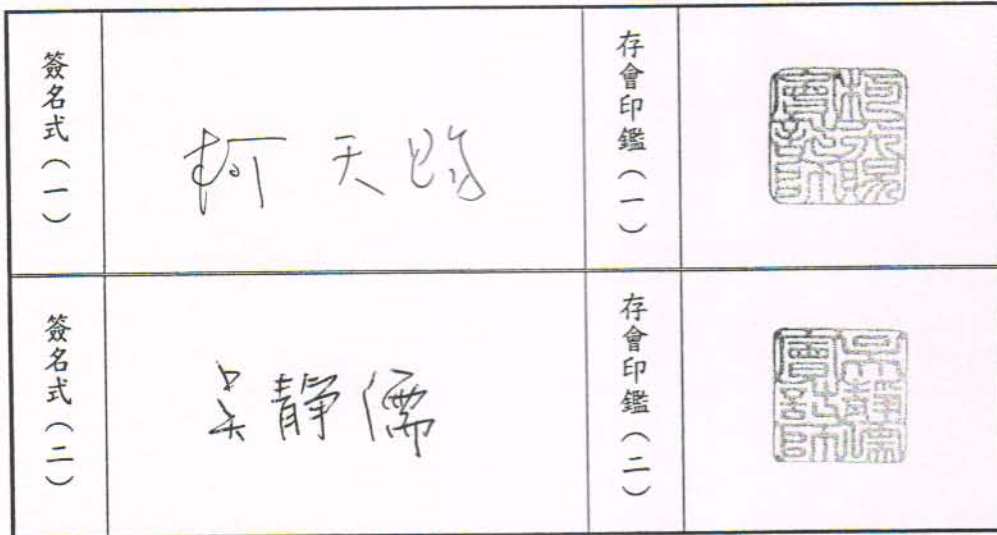 簽名式（一）
柯天賜
存會印鑑（一）
柯天賜會計師
簽名式（二）
吳靜儒
存會印鑑（二）
吳靜儒會計師